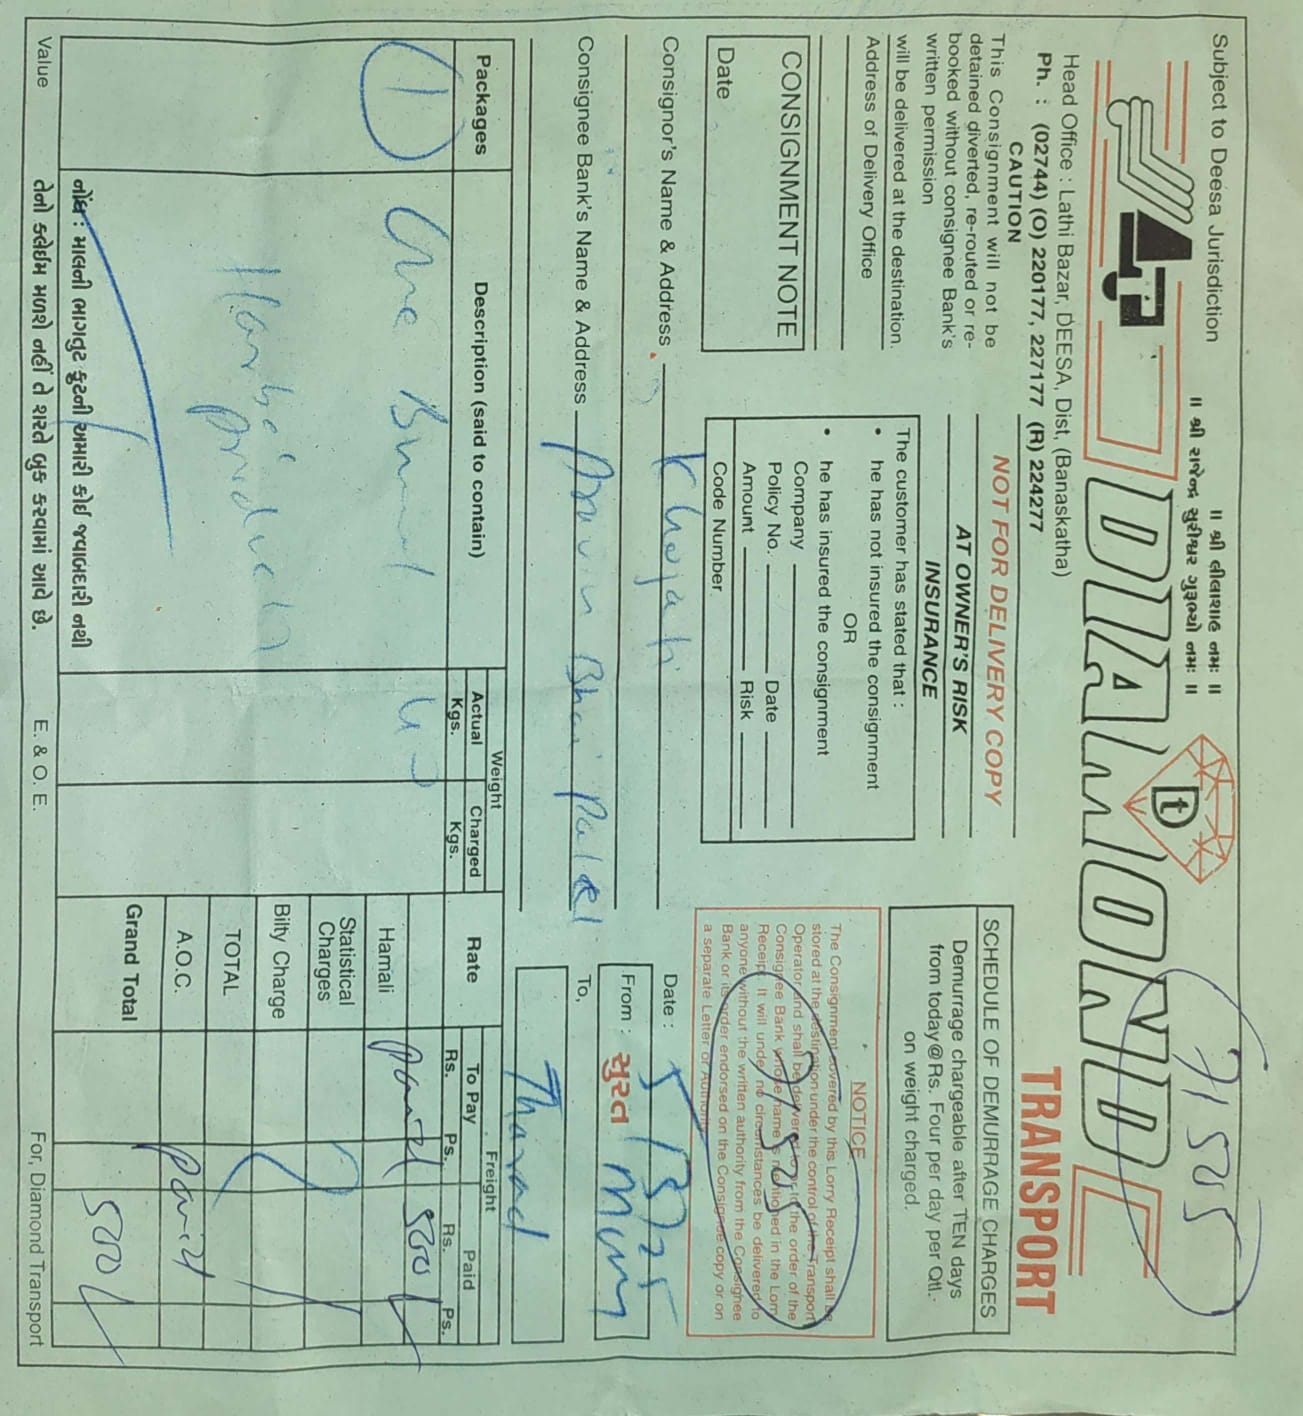 Subject to Deesa Jurisdiction
॥ શ્રી લીલાશાહ નમઃ ॥
॥ શ્રી રાજેન્દ્ર સુરીશ્વર ગુરૂભ્યો નમઃ ॥
DIAMOND
t
TRANSPORT
Head Office : Lathi Bazar, DEESA, Dist, (Banaskatha)
Ph. : (02744) (O) 220177, 227177 (R) 224277
CAUTION
This Consignment will not be
detained diverted, re-routed or re-
booked without consignee Bank's
written permission
will be delivered at the destination.
Address of Delivery Office
CONSIGNMENT NOTE
Date
NOT FOR DELIVERY COPY
AT OWNER'S RISK
INSURANCE
The customer has stated that :
• he has not insured the consignment
OR
• he has insured the consignment
Company
Policy No. Date
Amount Risk
Code Number
SCHEDULE OF DEMURRAGE CHARGES
Demurrage chargeable after TEN days
from today@Rs. Four per day per Qtl.-
on weight charged.
NOTICE
The Consignment covered by this Lorry Receipt shall be
stored at the destination under the control of the Transport
Operator and shall be delivered to or to the order of the
Consignee Bank whose name is mentioned in the Lorry
Receipt. It will under no circumstances be delivered to
anyone without the written authority from the Consignee
Bank or its order endorsed on the Consignee copy or on
a separate Letter or Authority
Consignor's Name & Address
Date :
Consignee Bank's Name & Address Pravin Bhai Patel
From : સુરત
To, Tharad
Packages
Description (said to contain)
Weight
Actual Kgs.
Charged Kgs.
Rate
Freight
To Pay
Rs. Ps.
Paid
Rs. Ps.
1
Hamali
Statistical Charges
Bilty Charge
TOTAL
A.O.C.
Grand Total
નોંધ : માલની ભાગતુટ ફુટની અમારી કોઈ જવાબદારી નથી
Value તેનો કલેઈમ મળશે નહીં તે શરતે બુક કરવામાં આવે છે. E. & O. E. For, Diamond Transport